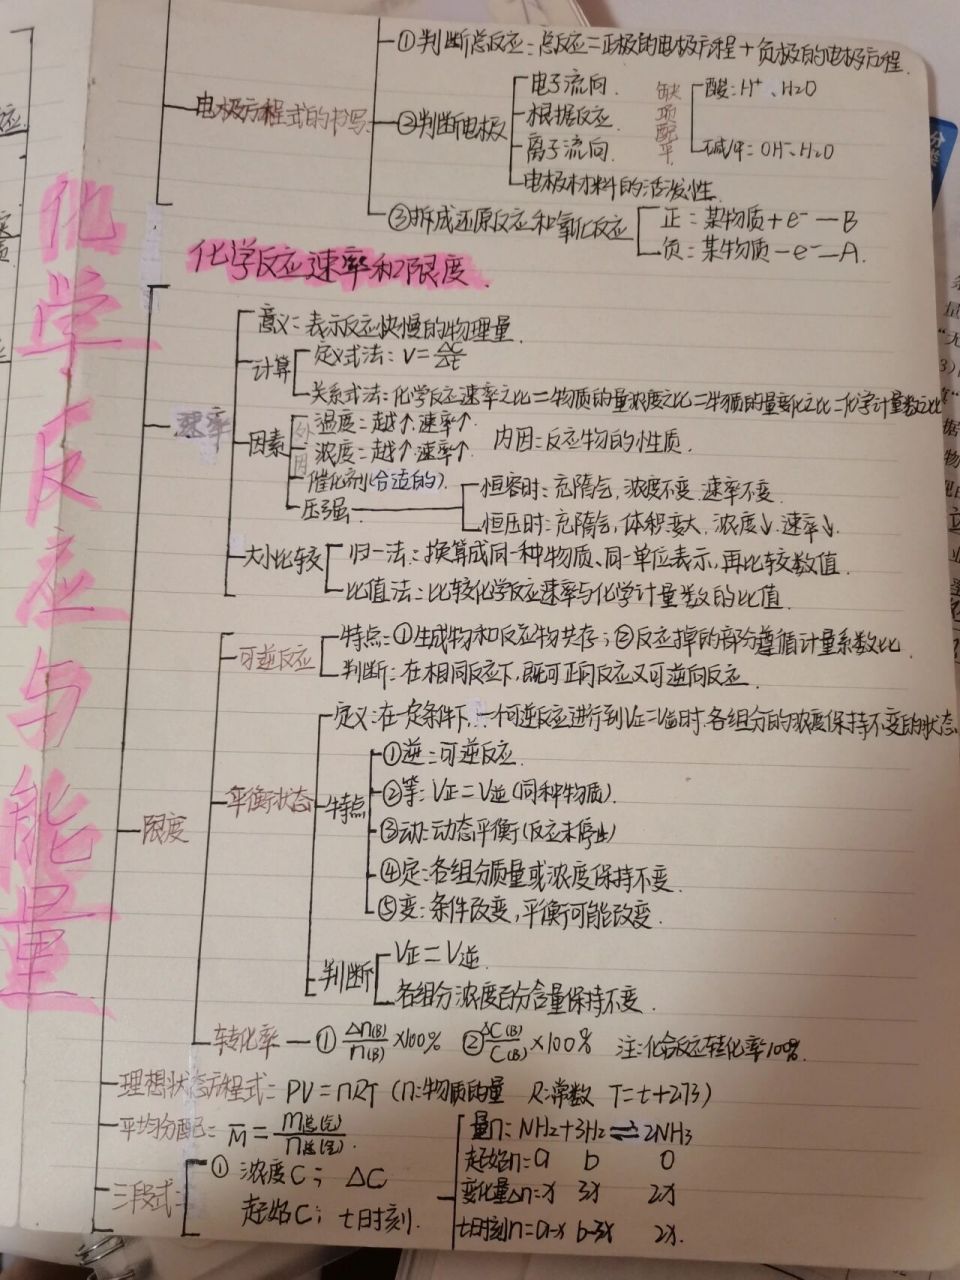 化学反应与能量
①判断总反应：总反应=正极的电极方程+负极的电极方程.
电极方程式的书写
②判断电极
电子流向
根据反应.
离子流向.
电极材料的活泼性.
缺项配平
酸:H⁺、H2O
碱/中:OH⁻、H2O
③拆成还原反应和氧化反应
正：某物质+e⁻—B
负：某物质-e⁻—A.
化学反应速率和限度.
速率
意义：表示反应快慢的物理量
计算
定义式法：V=ΔC/Δt
关系式法：化学反应速率之比=物质的量浓度之比=物质的量变化之比=化学计量数之比
因素
外因
温度：越↑.速率↑.
浓度：越↑.速率↑.
内因：反应物的性质.
催化剂(合适的).
压强
恒容时：充隋气，浓度不变.速率不变.
恒压时：充隋气，体积变大，浓度↓.速率↓.
大小比较
归一法：换算成同一种物质、同一单位表示，再比较数值.
比值法：比较化学反应速率与化学计量数的比值.
限度
可逆反应
特点：①生成物和反应物共存；②反应掉的部分遵循计量系数比.
判断：在相同反应下，既可正向反应又可逆向反应.
平衡状态
定义：在一定条件下，一个可逆反应进行到V正=V逆时.各组分的浓度保持不变的状态
特点
①逆：可逆反应.
②等：V正=V逆(同种物质).
③动：动态平衡(反应未停止)
④定：各组分质量或浓度保持不变.
⑤变：条件改变，平衡可能改变.
判断
V正=V逆.
各组分浓度百分含量保持不变.
转化率—①Δn(B)/n(B)×100% ②ΔC(B)/C(B)×100% 注：化合反应转化率100%.
理想状态方程式：PV=nRT (n:物质的量 R:常数 T=t+273)
平均分配：M̄=m总(气)/n总(气).
三段式：
①浓度C； ΔC
起始C； t时刻.
量n：NH2+3H2⇌2NH3
起始n=a b 0
变化量Δn=x 3x 2x
t时刻n=a-x b-3x 2x.